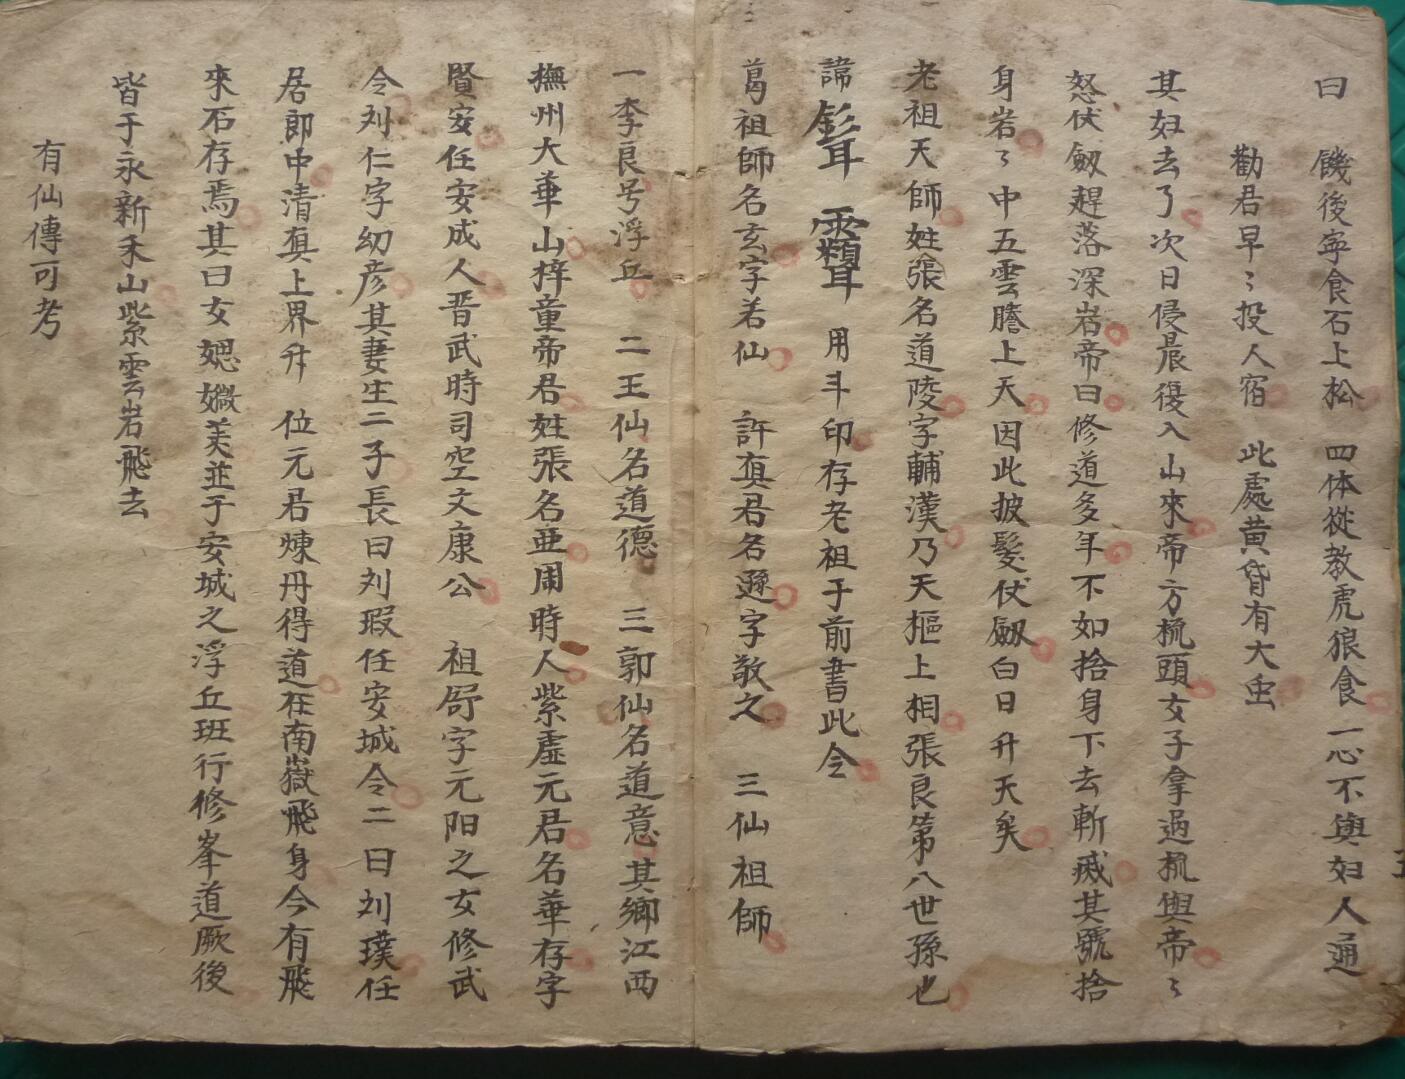 曰　饑後寧食石上松　四体從教虎狼食　一心不與妇人通
勸君早〻投人宿　此處黄昏有大虫
其妇去了次日侵晨復入山來帝方梳頭女子拿過梳與帝〻
怒伏劔趕落深岩帝曰修道多年不如捨身下去斬滅其號捨
身岩〻中五雲騰上天因此披髮伏劔白日升天矣
老祖天師姓張名道陵字輔漢乃天樞上相張良第八世孫也
諱　用斗印存老祖于前書此令
葛祖師名玄字若仙　許真君名遜字敬之　三仙祖師
一李良号浮丘　二王仙名道德　三郭仙名道意其鄉江西
撫州大華山梓童帝君姓張名亜周時人紫虛元君名華存字
賢安任安成人晋武時司空文康公　祖舒字元阳之女修武
令刘仁字幼彦其妻生二子長曰刘瑕任安城令二曰刘璞任
居郎中清真上界升　位元君煉丹得道在南嶽飛身今有飛
來石存焉其曰女媤媺美並于安城之浮丘班行修峯道厥後
皆于永新禾山紫雲岩飛去
有仙傳可考